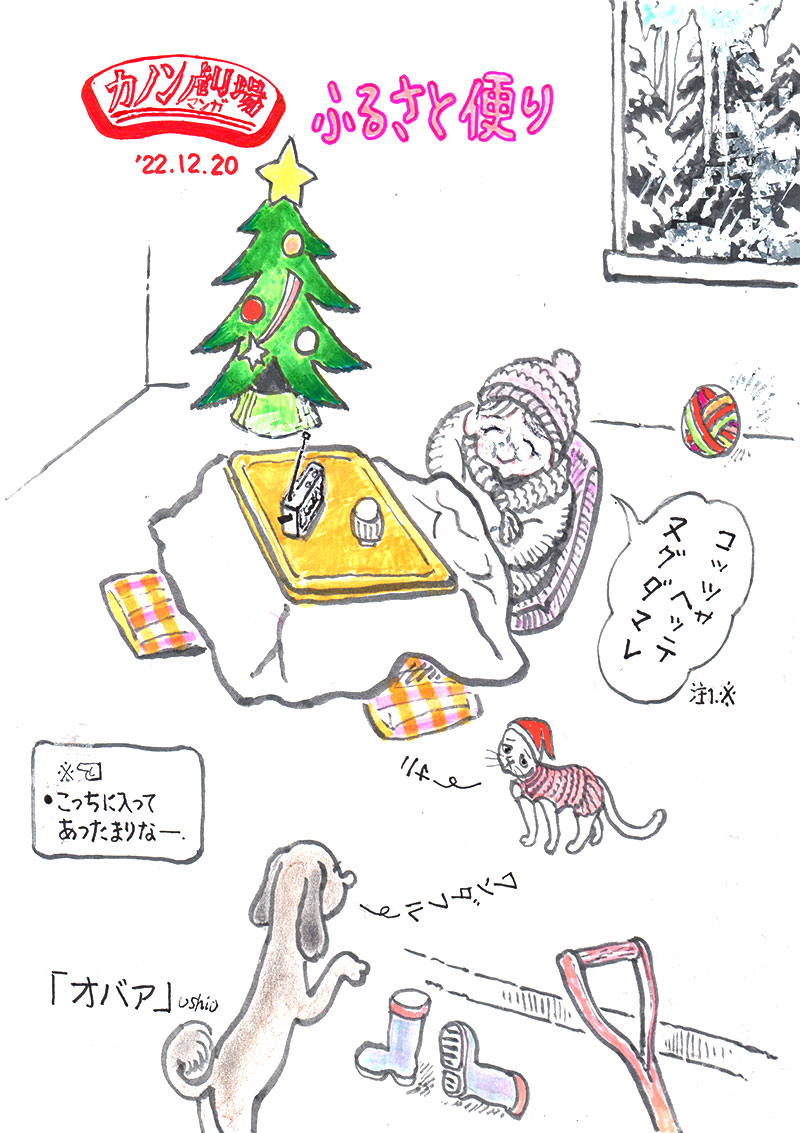 カノン劇場
マンガ
'22.12.20
ふるさと便り
コッツャヘッテ
ヌグダマレ
注1.※
・こっちに入って
あったまりなー.
ワンダフル
「オバア」ushio